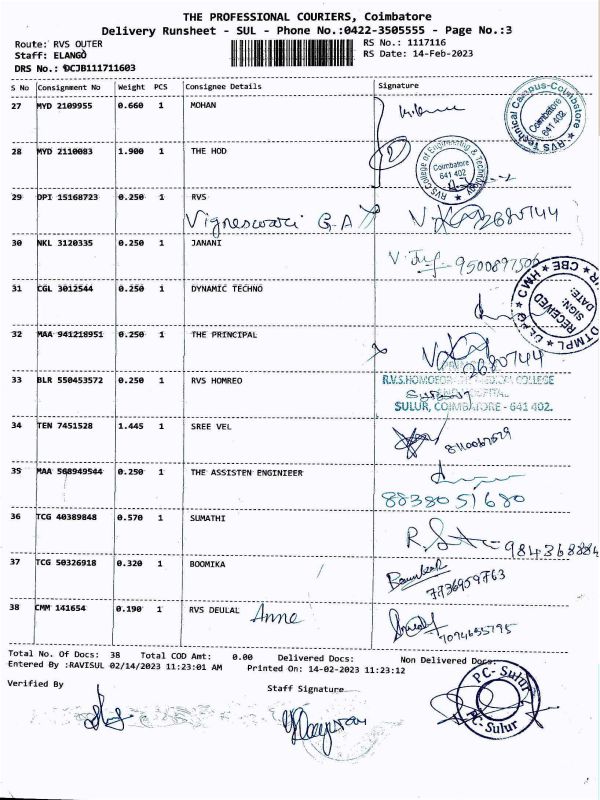 THE PROFESSIONAL COURIERS, Coimbatore
Delivery Runsheet - SUL - Phone No.:0422-3505555 - Page No.:3
Route: RVS OUTER RS No.: 1117116
Staff: ELANGO RS Date: 14-Feb-2023
DRS No.: DCJB111711603
S No Consignment No Weight PCS Consignee Details Signature
27 MYD 2109955 0.660 1 MOHAN
RVS Technical Campus-Coimbatore
Coimbatore
641 402
28 MYD 2110083 1.900 1 THE HOD
RVS College of Engineering & Technology
Coimbatore
641 402
29 DPI 15168723 0.250 1 RVS
Vigneswari G.A 2680744
30 NKL 3120335 0.250 1 JANANI
31 CGL 3012544 0.250 1 DYNAMIC TECHNO
CWH CBE
RECEIVED
SIGN:
DATE:
32 MAA 941218951 0.250 1 THE PRINCIPAL
2680744
33 BLR 550453572 0.250 1 RVS HOMREO
COLLEGE
SULUR, COIMBATORE - 641 402.
34 TEN 7451528 1.445 1 SREE VEL
35 MAA 568949544 0.250 1 THE ASSISTEN ENGINIEER
8838051680
36 TCG 40389848 0.570 1 SUMATHI
37 TCG 50326918 0.320 1 BOOMIKA
38 CMM 141654 0.190 1 RVS DEULAL Anne
Total No. Of Docs: 38 Total COD Amt: 0.00 Delivered Docs: Non Delivered Docs:
Entered By :RAVISUL 02/14/2023 11:23:01 AM Printed On: 14-02-2023 11:23:12
Verified By Staff Signature
PC-Sulur
PC-Sulur